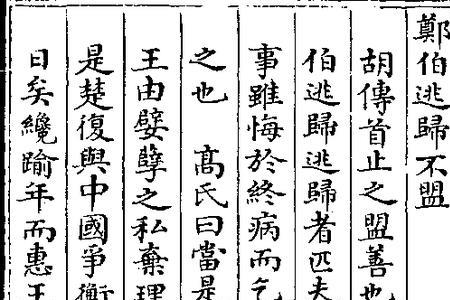 鄭伯逃歸不盟
胡傳首止之盟善也
伯逃歸逃歸者匹夫
事雖悔於終病而乞
之也　髙氏曰當是
王由嬖孽之私棄理
是楚復與中國爭衡
日矣纔踰年而惠王